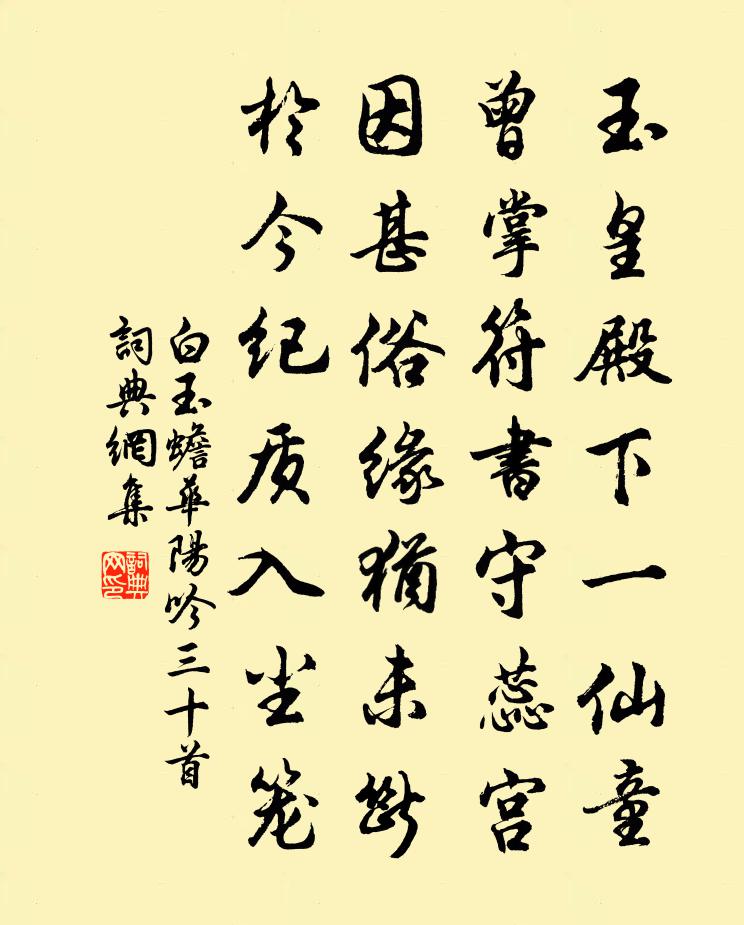 玉皇殿下一仙童
曾掌符書守蕊宮
因甚俗緣猶未斷
於今纪质入尘笼
白玉蟾華陽吟三十首
詞典網集
詞典網印